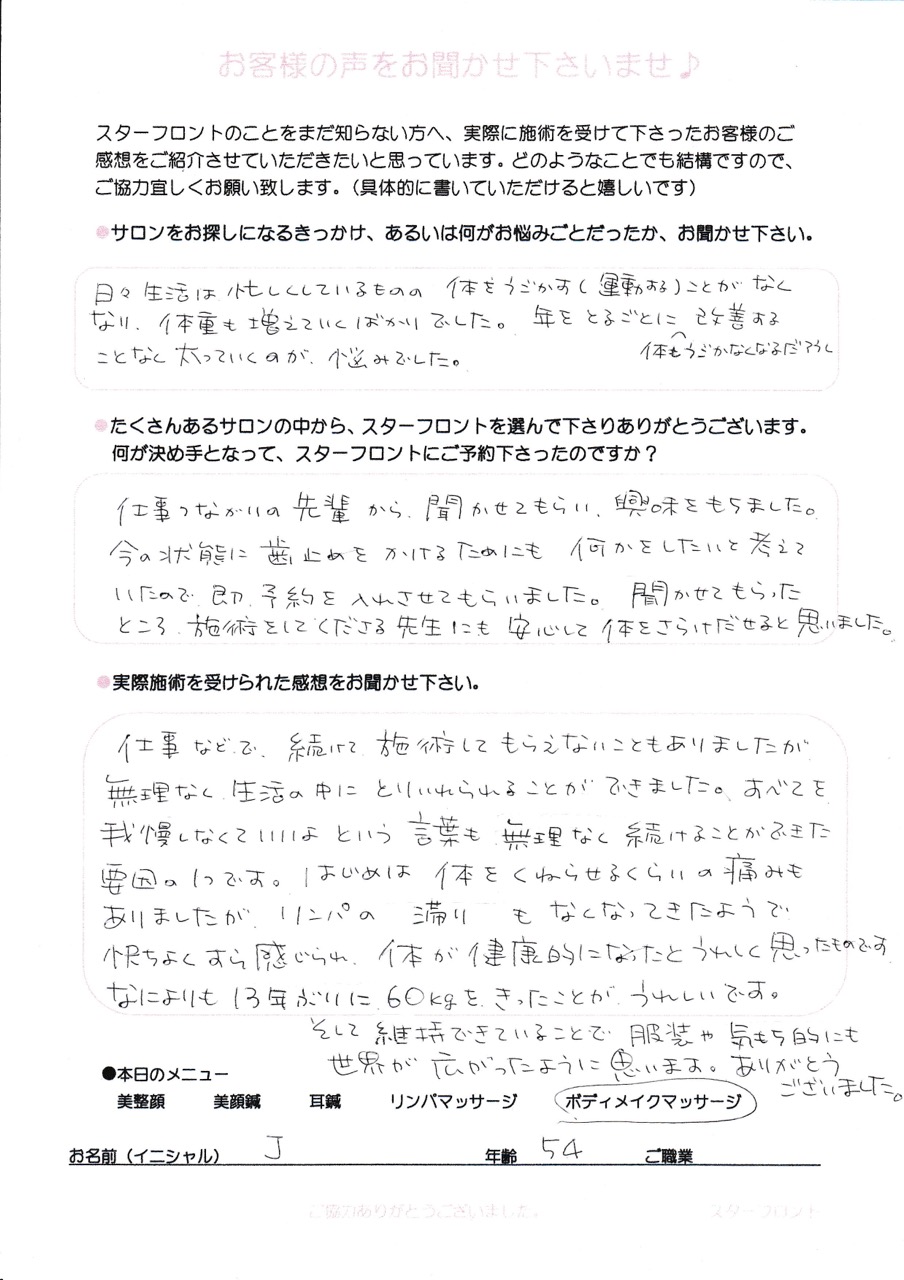 お客様の声をお聞かせ下さいませ♪
スターフロントのことをまだ知らない方へ、実際に施術を受けて下さったお客様のご
感想をご紹介させていただきたいと思っています。どのようなことでも結構ですので、
ご協力宜しくお願い致します。（具体的に書いていただけると嬉しいです）
●サロンをお探しになるきっかけ、あるいは何がお悩みごとだったか、お聞かせ下さい。
日々生活は忙しくしているものの 体をうごかす（運動する）ことがなく
なり、体重も増えていくばかりでした。年をとるごとに改善する
体もうごかなくなるだろうし
ことなく太っていくのが、悩みでした。
●たくさんあるサロンの中から、スターフロントを選んで下さりありがとうございます。
何が決め手となって、スターフロントにご予約下さったのですか？
仕事つながりの先輩から、聞かせてもらい、興味をもちました。
今の状態に歯止めをかけるためにも 何かをしたいと考えて
いたので、即、予約を入れさせてもらいました。聞かせてもらった
ところ、施術をしてくださる先生にも安心して体をさらけだせると思いました。
●実際施術を受けられた感想をお聞かせ下さい。
仕事などで、続けて、施術してもらえないこともありましたが
無理なく、生活の中にとりいれられることができました。すべてを
我慢しなくていいよという言葉も無理なく続けることができた
要因の1つです。はじめは体をくねらせるくらいの痛みも
ありましたが、リンパの滞りもなくなってきたようで
快ちよくすら感じられ、体が健康的になったとうれしく思ったものです
なによりも13年ぶりに、60kgを、きったことが、うれしいです。
そして維持できていることで服装や気もち的にも
世界が広がったように思います。ありがとう
ございました。
●本日のメニュー
美整顔 美顔鍼 耳鍼 リンパマッサージ ボディメイクマッサージ
お名前（イニシャル） J 年齢 54 ご職業
ご協力ありがとうございました。 スターフロント